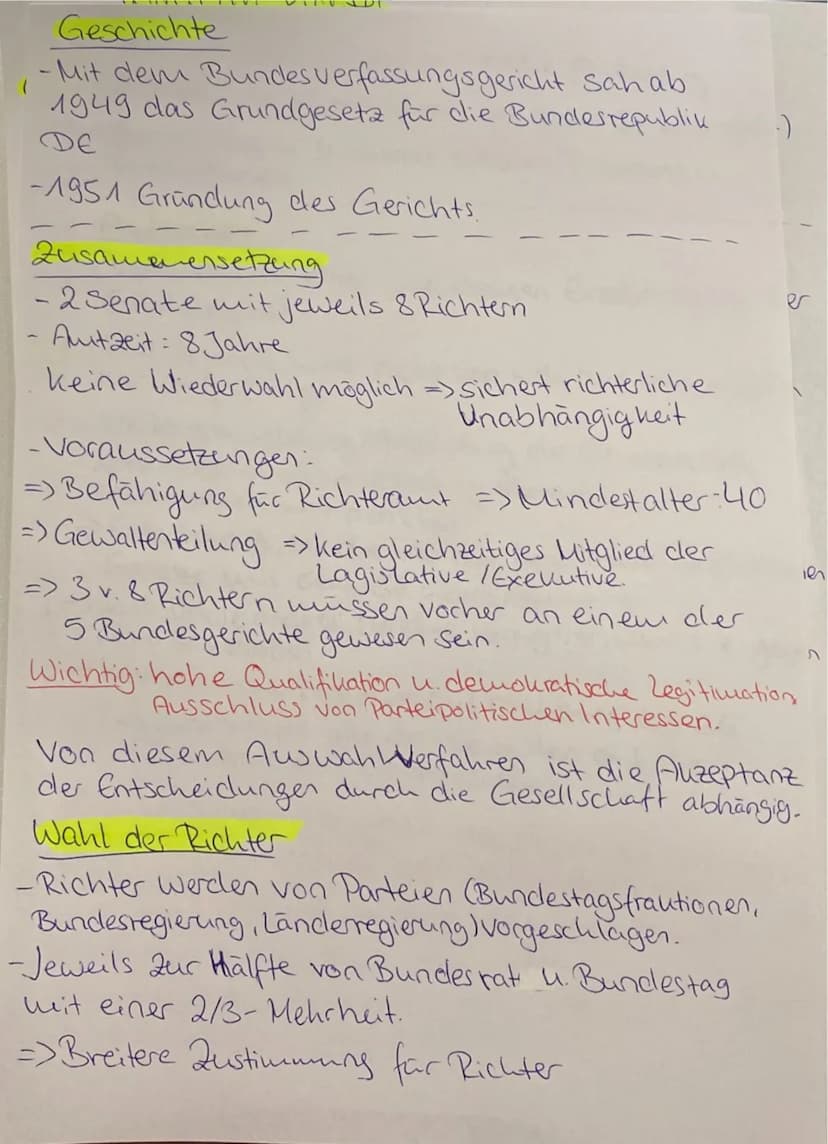 Geschichte
- Mit dem Bundesverfassungsgericht sah ab
1949 das Grundgesetz für die Bundesrepublik
DE
- 1951 Gründung des Gerichts.
Zusammensetzung
- 2 Senate mit jeweils 8 Richtern
- Amtzeit: 8 Jahre
keine Wiederwahl möglich => sichert richterliche
Unabhängigkeit
- Voraussetzungen:
=> Befähigung für Richteramt => Mindestalter: 40
=> Gewaltenteilung => kein gleichzeitiges Mitglied der
Lagislative / Exekutive.
=> 3 v. 8 Richtern müssen vorher an einem der
5 Bundesgerichte gewesen sein.
Wichtig: hohe Qualifikation u. demokratische Legitimation,
Ausschluss von Parteipolitischen Interessen.
Von diesem Auswahlverfahren ist die Akzeptanz
der Entscheidungen durch die Gesellschaft abhängig.
Wahl der Richter
- Richter werden von Parteien (Bundestagsfraktionen,
Bundesregierung, Länderregierung) vorgeschlagen.
- Jeweils zur Hälfte von Bundesrat u. Bundestag
mit einer 2/3 - Mehrheit.
=> Breitere Zustimmung für Richter